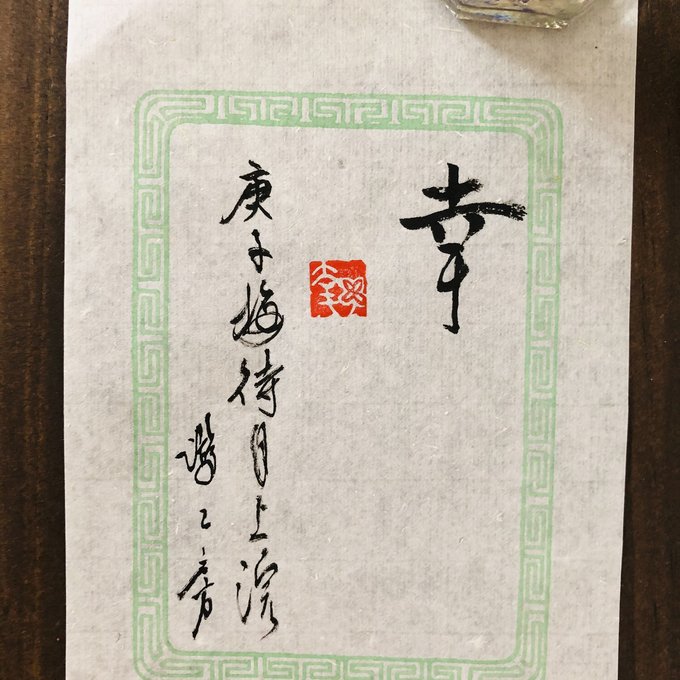 幸
庚子梅待月上浣
房